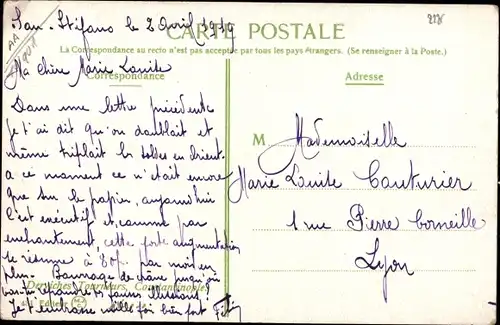 San-Stefano le 2 Avril 1919
CARTE POSTALE
La Correspondance au recto n'est pas acceptée par tous les pays étrangers. (Se renseigner à la Poste.)
Ma Chère Marie Louise
Correspondance
Adresse
Dans une lettre précédente
je t'ai dit qu'on doublait et
même triplait les soldes en orient.
a ce moment ce n'était encore
que sur le papier, aujourd'hui
c'est exécutif et, comme par
enchantement, cette forte augmentation
se résume à 30f. par mois en
plus.
M Mademoiselle
Marie Louise Couturier
1 rue Pierre Corneille
Lyon
Derviches Tourneurs, Constantinople
Je t'embrasse mille fois bien fort